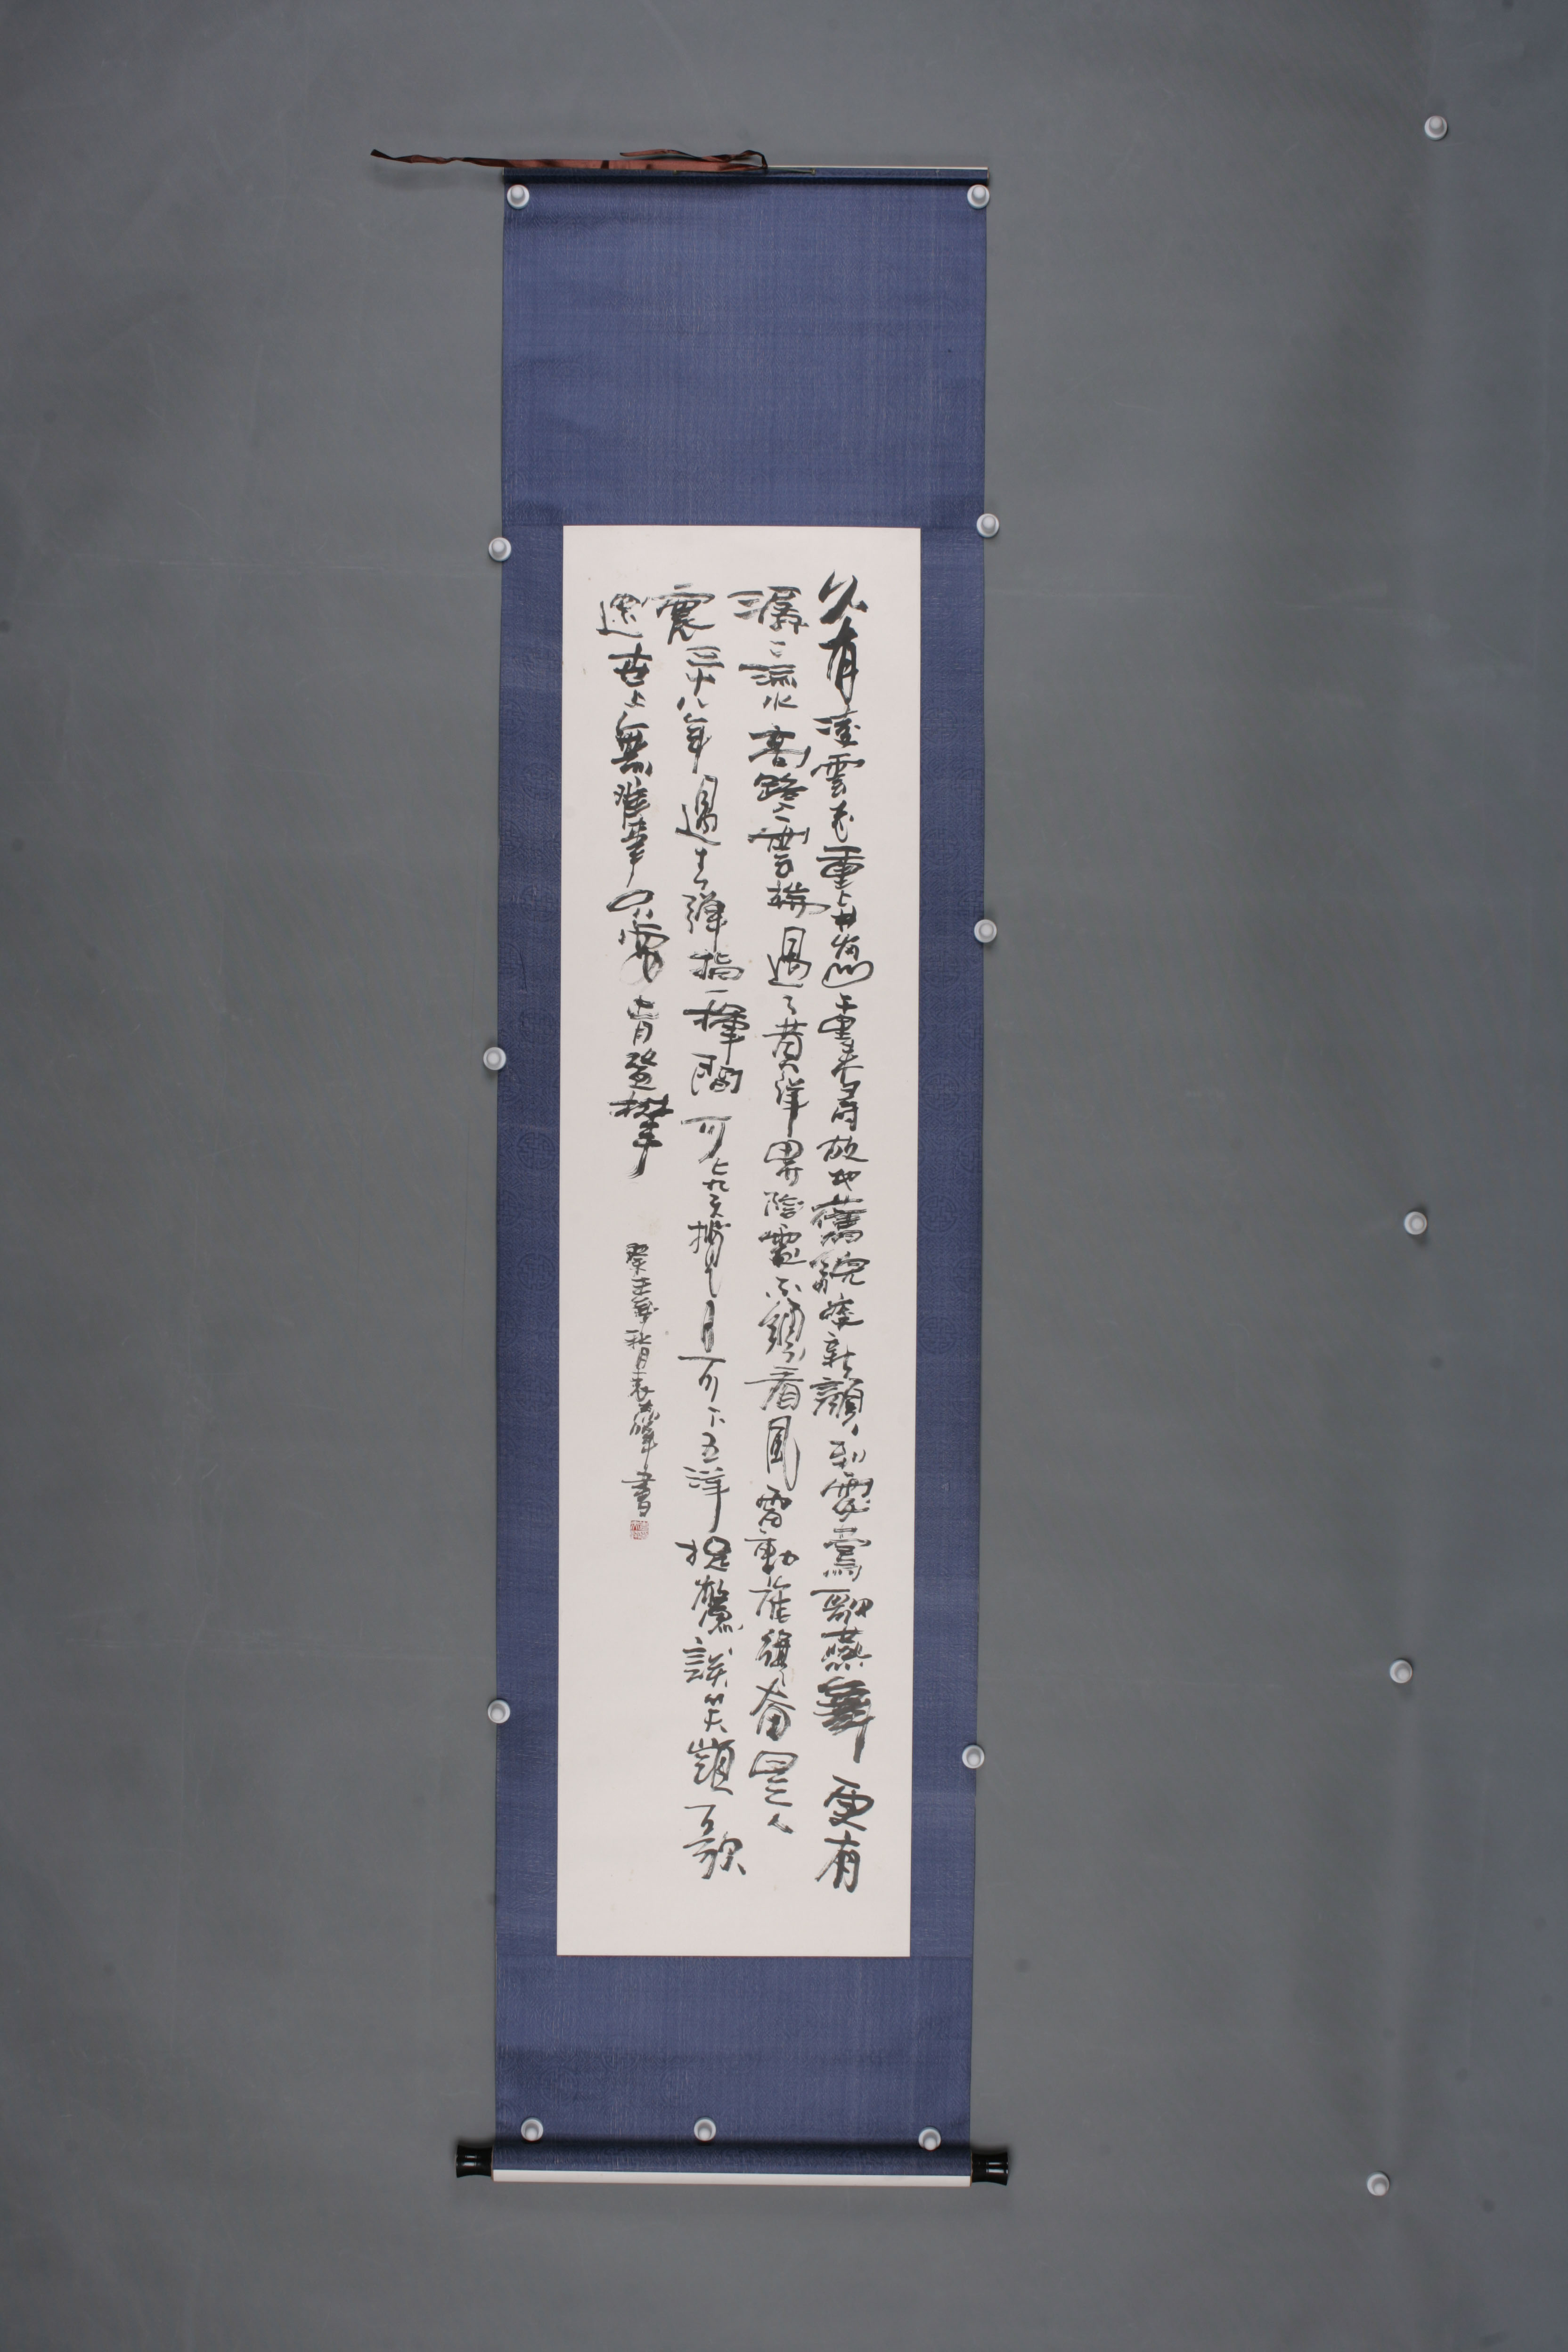 久有凌雲志重上井岡山千里來尋故地舊貌變新顏到處鶯歌燕舞更有
潺〻流水高路入雲端過了黃洋界險處不須看風雷動旌旗奮是人
寰三十八年過去彈指一揮間可上九天攬月可下五洋捉鱉談笑凱歌
還世上無難事只要肯登攀
年秋月書